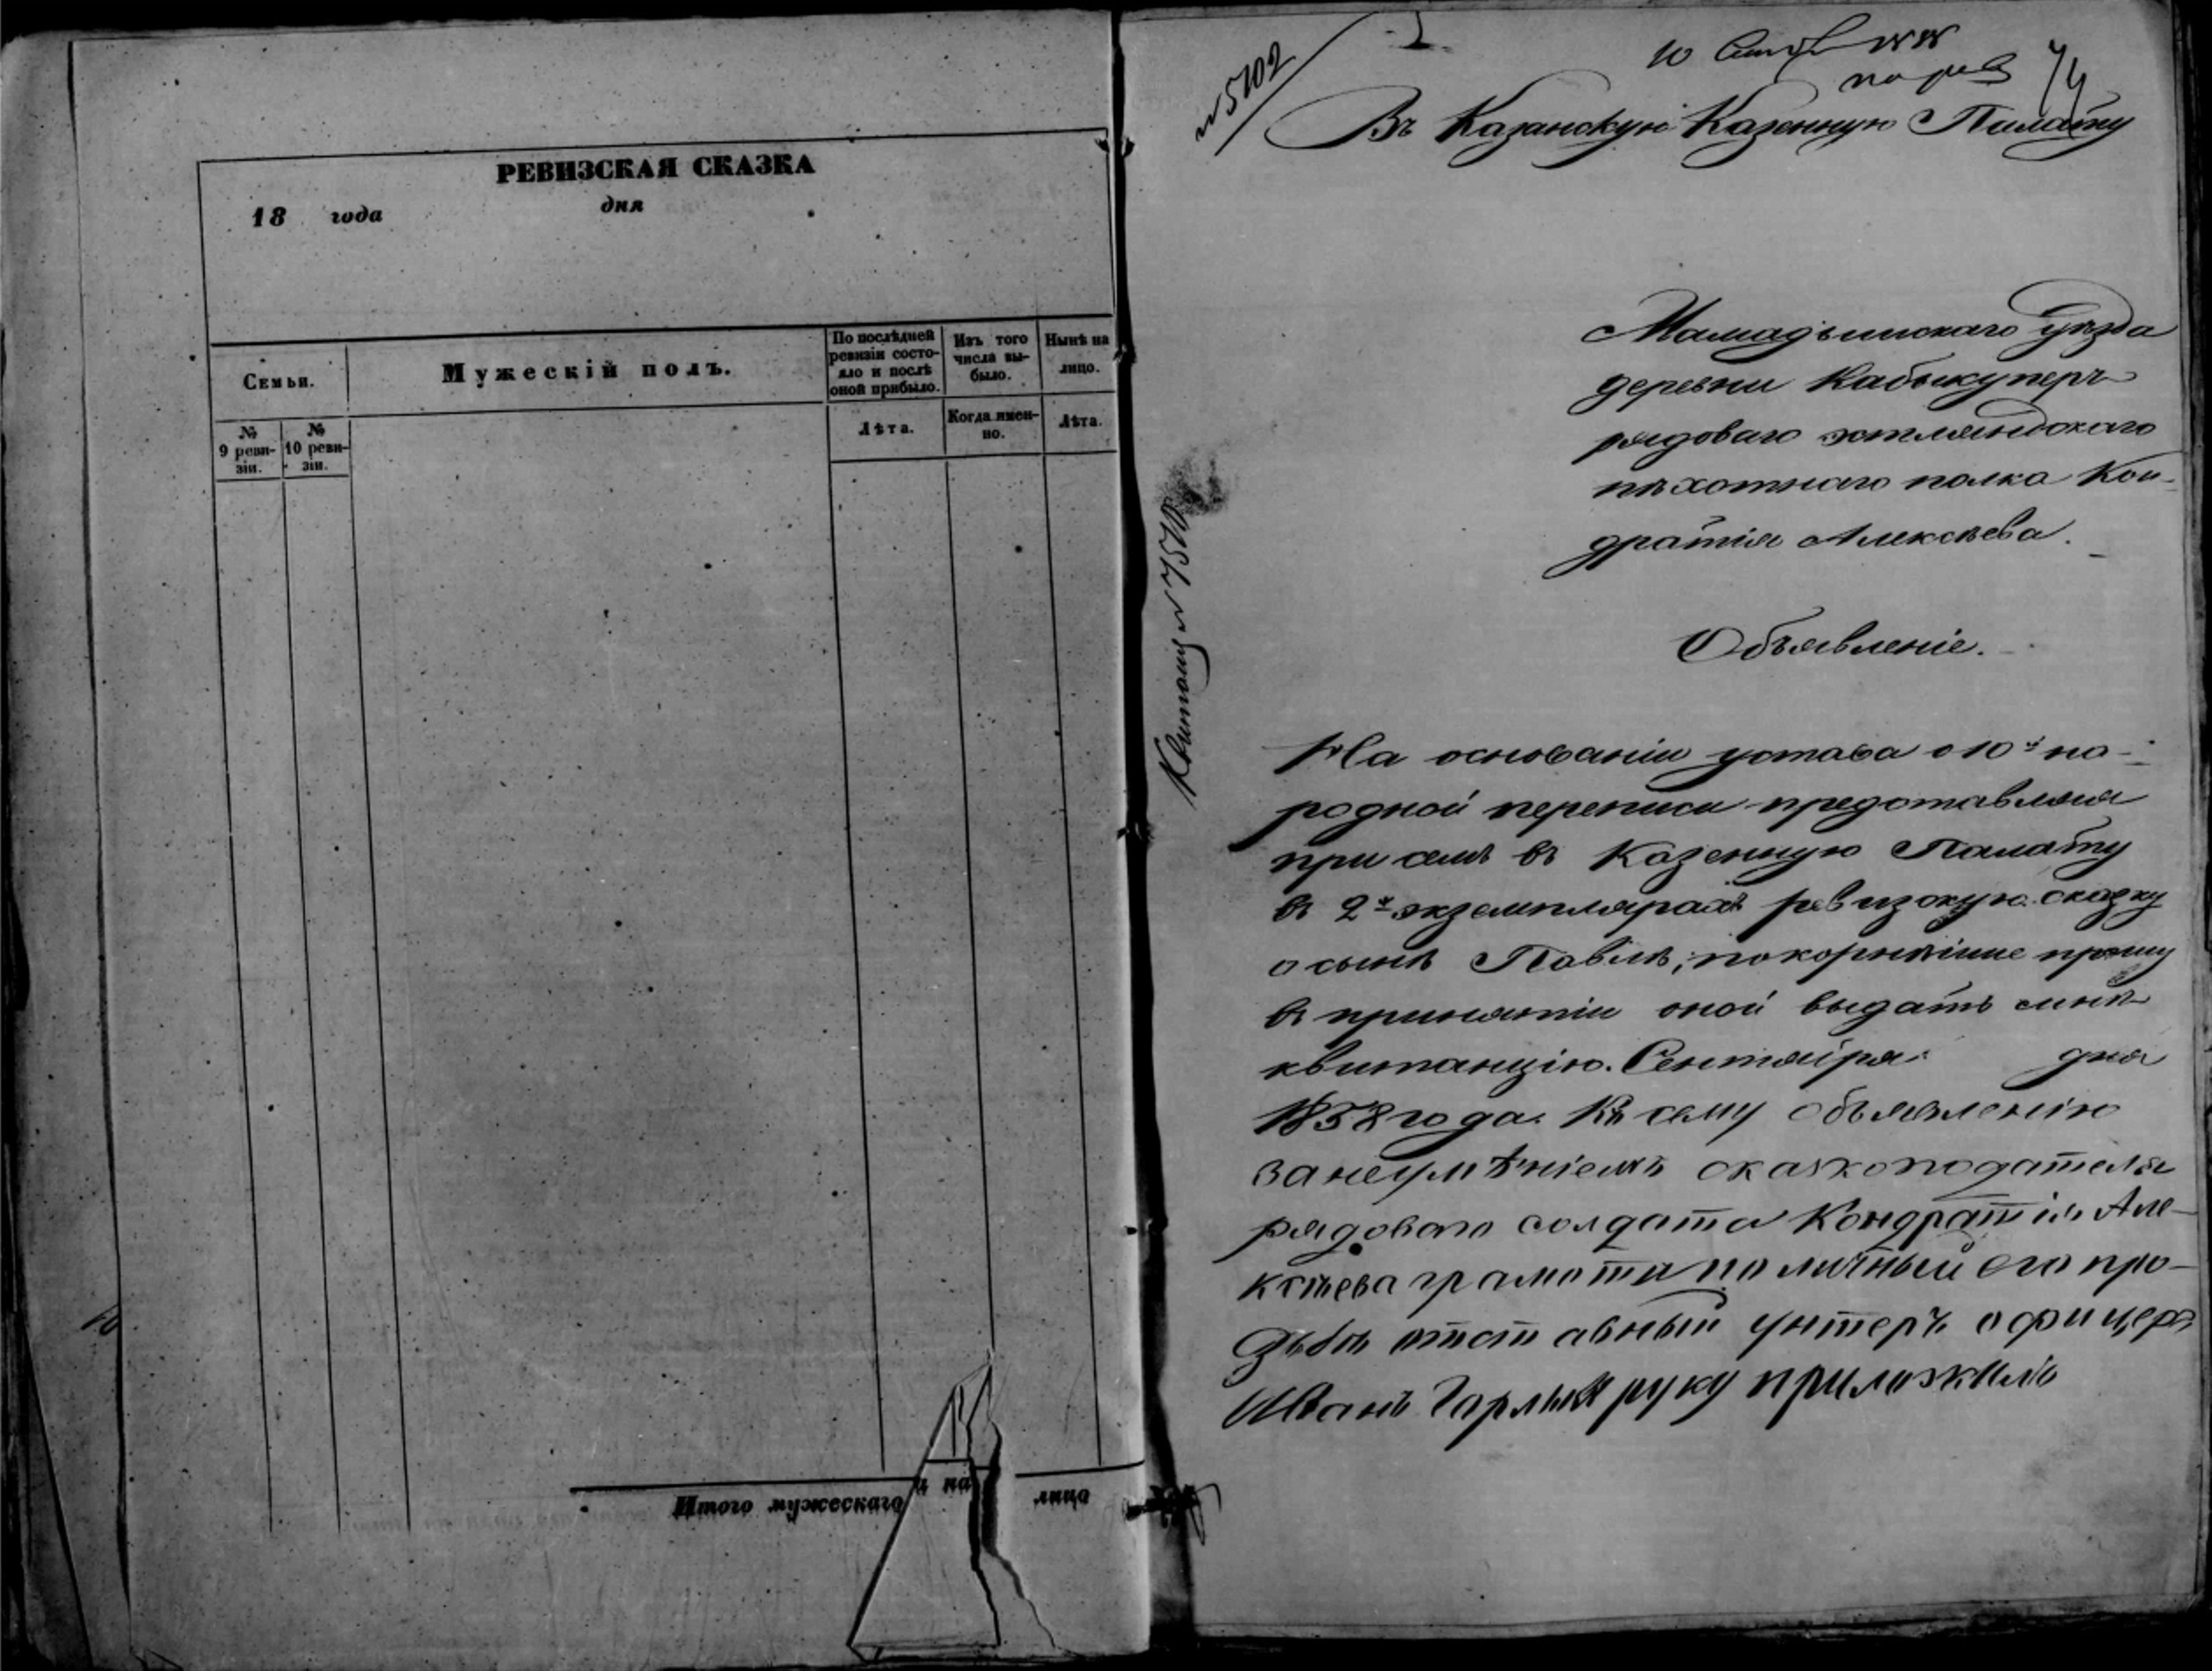 РЕВИЗСКАЯ СКАЗКА
18 года дня
Семьи.
Мужескій полъ.
По послѣдней ревизіи состояло и послѣ оной прибыло.
Изъ того числа выбыло.
Нынѣ на лицо.
№ 9 ревизіи.
№ 10 ревизіи.
Лѣта.
Когда именно.
Лѣта.
Итого мужескаго
и на
лицо
№ 5102
10
74
Въ Казанскую Казенную Палату
Мамадышскаго уѣзда
деревни Кабыкуперъ
рядоваго эстляндскаго
пѣхотнаго полка Кон-
дратія Алексѣева.
Объявленіе.
На основаніи устава о 10й на-
родной переписи представляя
при семъ въ Казенную Палату
въ 2х экземплярахъ ревизскую сказку
о сынѣ Павлѣ, покорнѣйше прошу
въ принятіи оной выдать мнѣ
квитанцію. Сентября дня
1858 года. Къ сему объявленію
за неумѣніемъ сказкоподателя
рядоваго солдата Кондратія Але-
ксѣева грамоты по личный его про-
зьбѣ отставный унтеръ офицеръ
Иванъ руку приложилъ